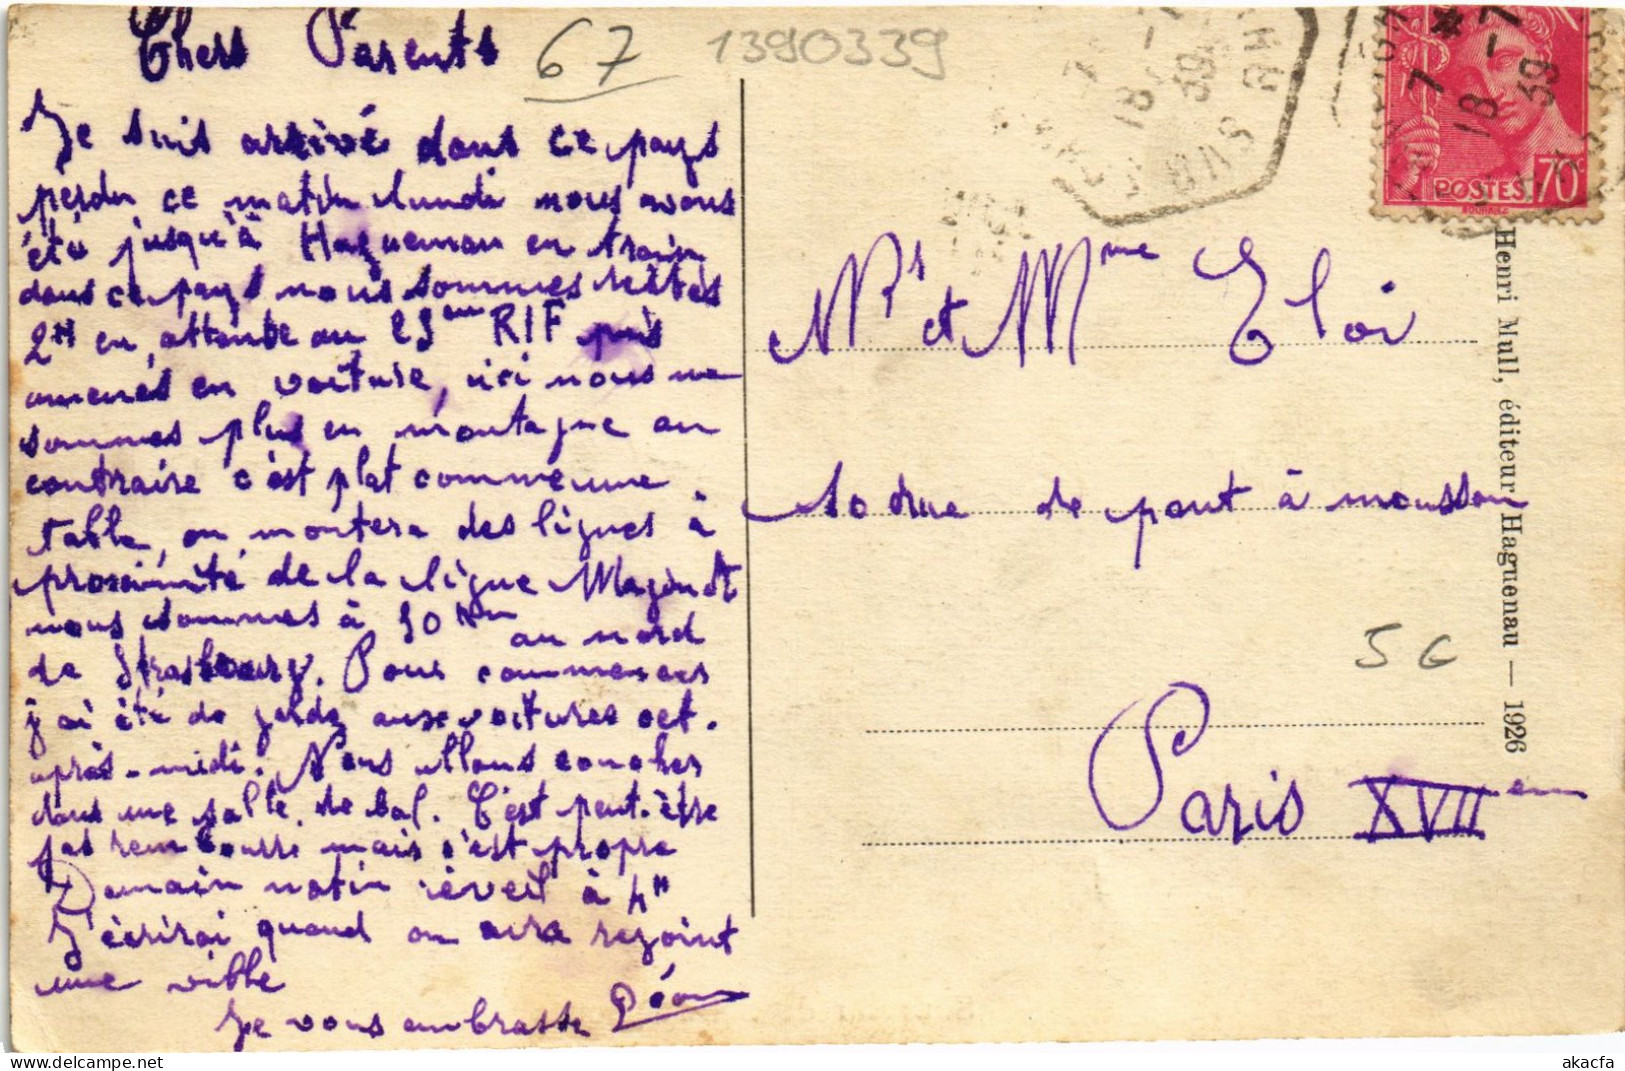 Chers Parents
67
1390339
Je suis arrivé dans ce pays
perdu ce matin lundi nous avons
été jusqu'à Haguenau en train
dans ce pays nous sommes restés
2H en attente au 23em RIF puis
amenés en voiture, ici nous ne
sommes plus en montagne au
contraire c'est plat comme une
table, on montera des lignes à
proximité de la ligne Maginot
nous sommes à 30 Km au nord
de Strasbourg. Pour commencer
j'ai été de garde aux voitures cet.
après-midi. Nous allons coucher
dans une salle de bal. C'est peut-être
pas rembourré mais c'est propre
Demain matin réveil à 4H
J'écrirai quand on aura rejoint
une ville
Je vous embrasse Léon
Mr et Mme Eloi
10 rue de pont à mousson
Paris XVIIem
5 G
7 *
18 - 7
39
POSTES 70c
Henri Mull, éditeur Haguenau — 1926
akacfa